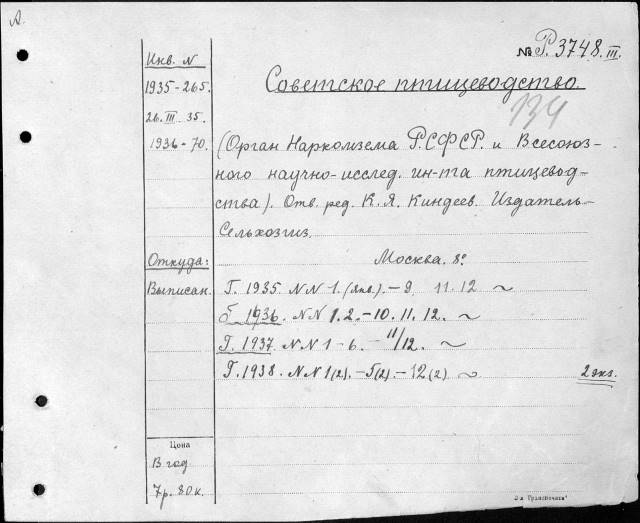 А.
№ Р. 3748. III.
Инв. N
1935-265.
26. III. 35.
1936-70.
Советское птицеводство.
134
(Орган Наркомзема Р.С.Ф.С.Р. и Всесоюз-
ного научно-исслед. ин-та птицевод-
ства). Отв. ред. К. Я. Киндеев. Издатель-
Сельхозгиз.
Москва. 8º
Откуда:
Выписан.
Г. 1935. NN 1. (янв.). – 9. 11. 12 ~
Г. 1936. NN 1. 2. – 10. 11. 12. ~
Г. 1937. NN 1 - 6. – 11/12. ~
Г. 1938. NN 1(2). – 5(2). – 12(2) ~ 2 экз.
Цена
В год
7 р. 80 к.